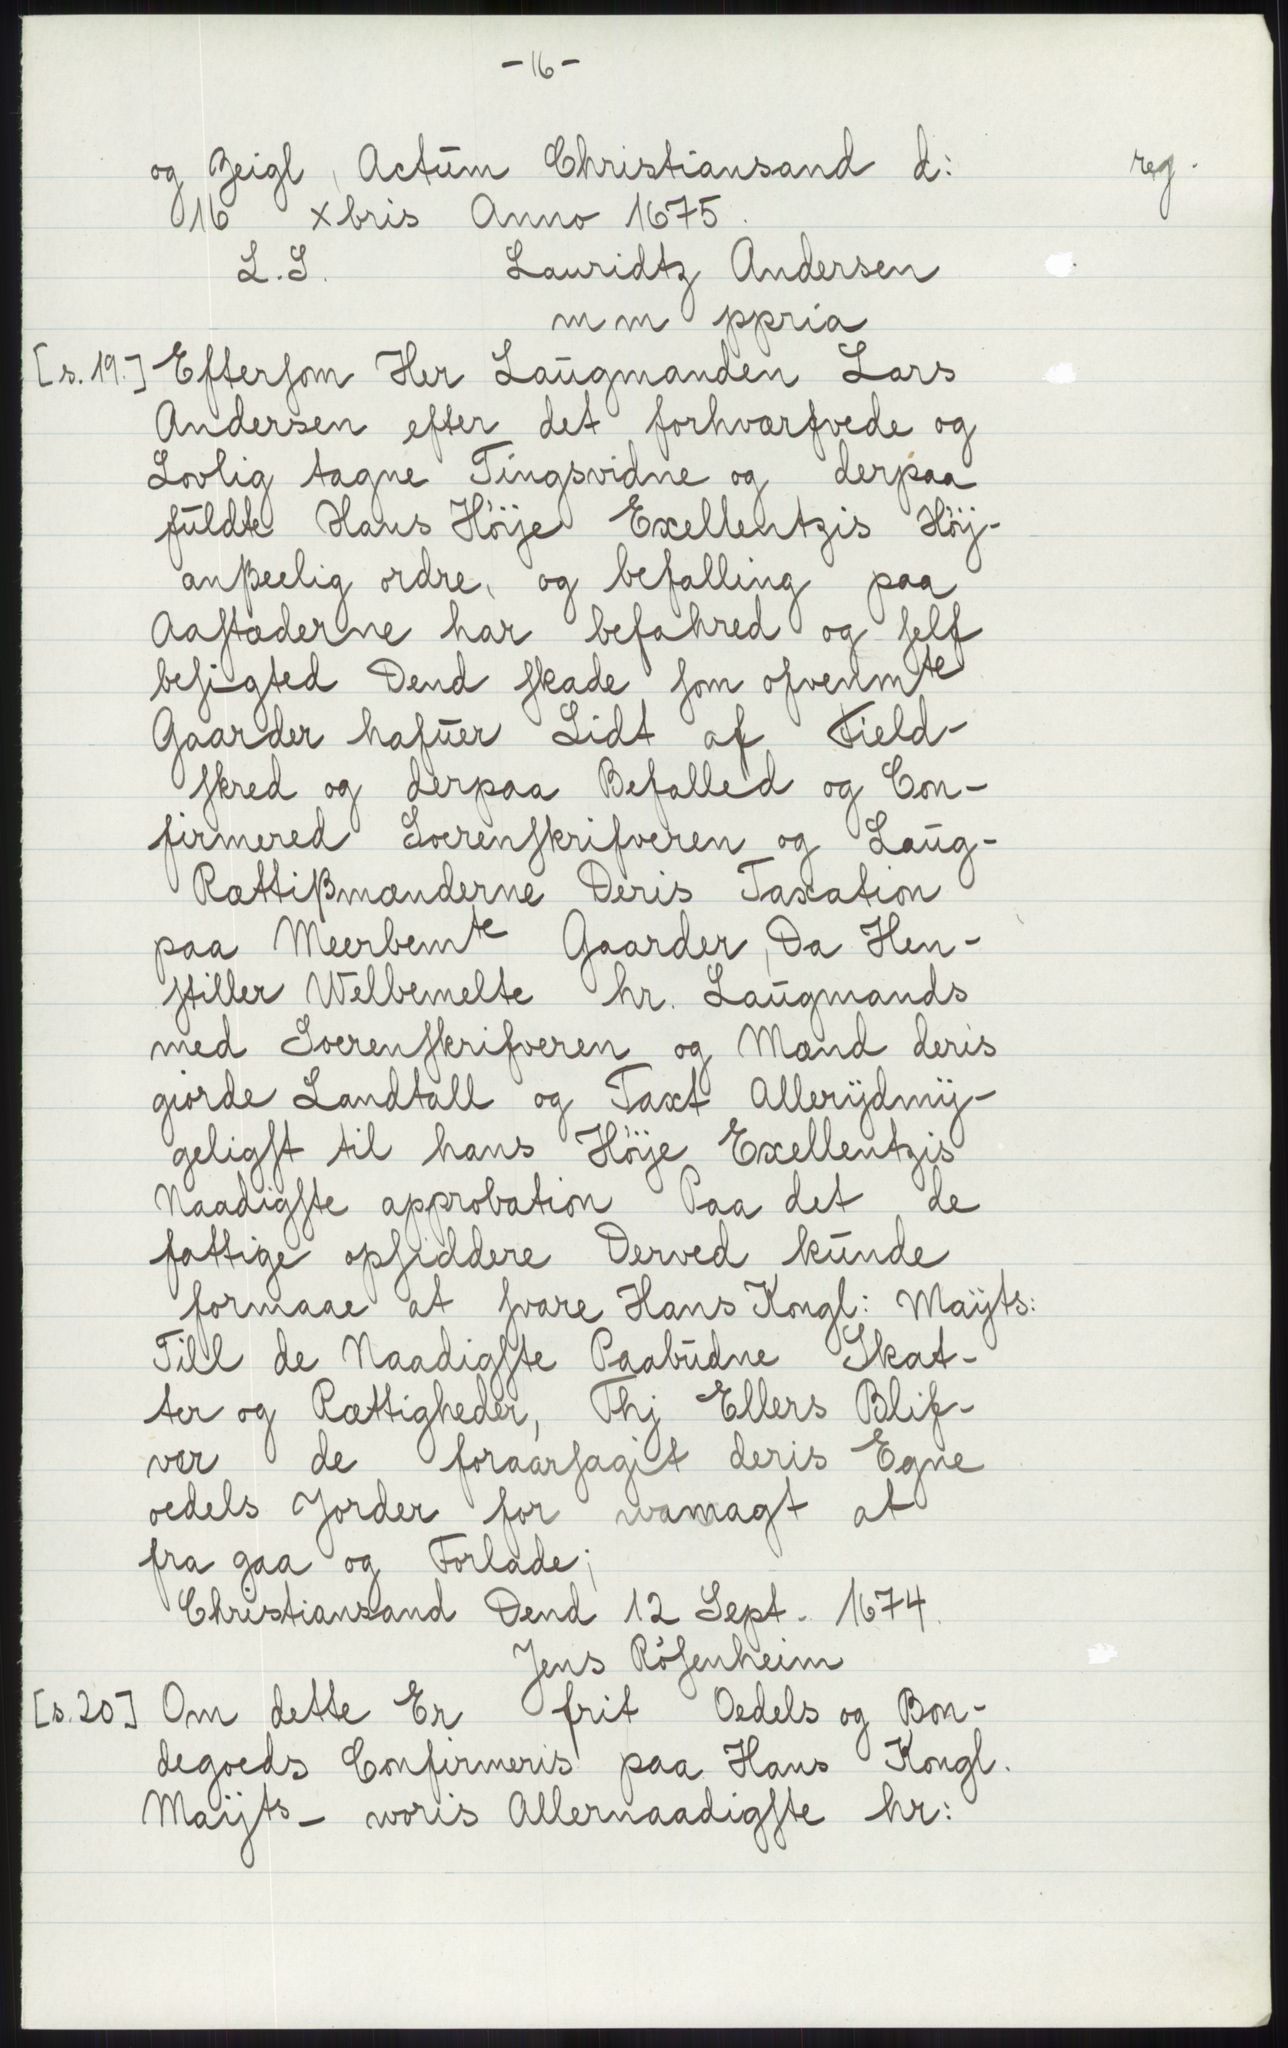 -16-
og Zeigl, Actūm Christiansand d: reg.
16 xbris Anno 1675.
L.S. Lauridtz Andersen
m m ppria
[s.19.] Eftersom Her Laūgmanden Lars
Andersen efter det forhværfvede og
Lovlig tagne Tingsvidne og derpaa
fūldte Hans Høÿe Exellentzis Høÿ-
anßeelig ordre, og befalling paa
Aastæderne har befahred og self
besigted Dend skade som ofvenmte
Gaarder hafūer Lidt af Field-
skred og derpaa Befalled og Con-
firmered Soerenskrifveren og Laūg-
Rættißmænderne Deris Taxation
paa Meerbemte Gaarder, Da Hen-
stiller Welbemelte hr. Laūgmands
med Soerenskrifveren og Mænd deris
giorde Landtall og Taxt Allerÿdmÿ-
geligst til hans Høÿe Exellentzis
Naadigste approbation Paa det de
fattige opsiddere Derved kūnde
formaae at svare Hans Kongl: Maÿts:
Till de Naadigste Paabūdne Skat-
ter og Rættigheder, Thj Ellers Blif-
ver de foraarsagit deris Egne
oedels Jorder for wamagt at
fra gaa og Forlade;
Christiansand Dend 12 Sept. 1674.
Jens Røsenheim
[s.20] Om dette Er frit Oedels og Bon-
degoeds Confirmeris paa Hans Kongl.
Maÿts- woris Allernaadigste hr: